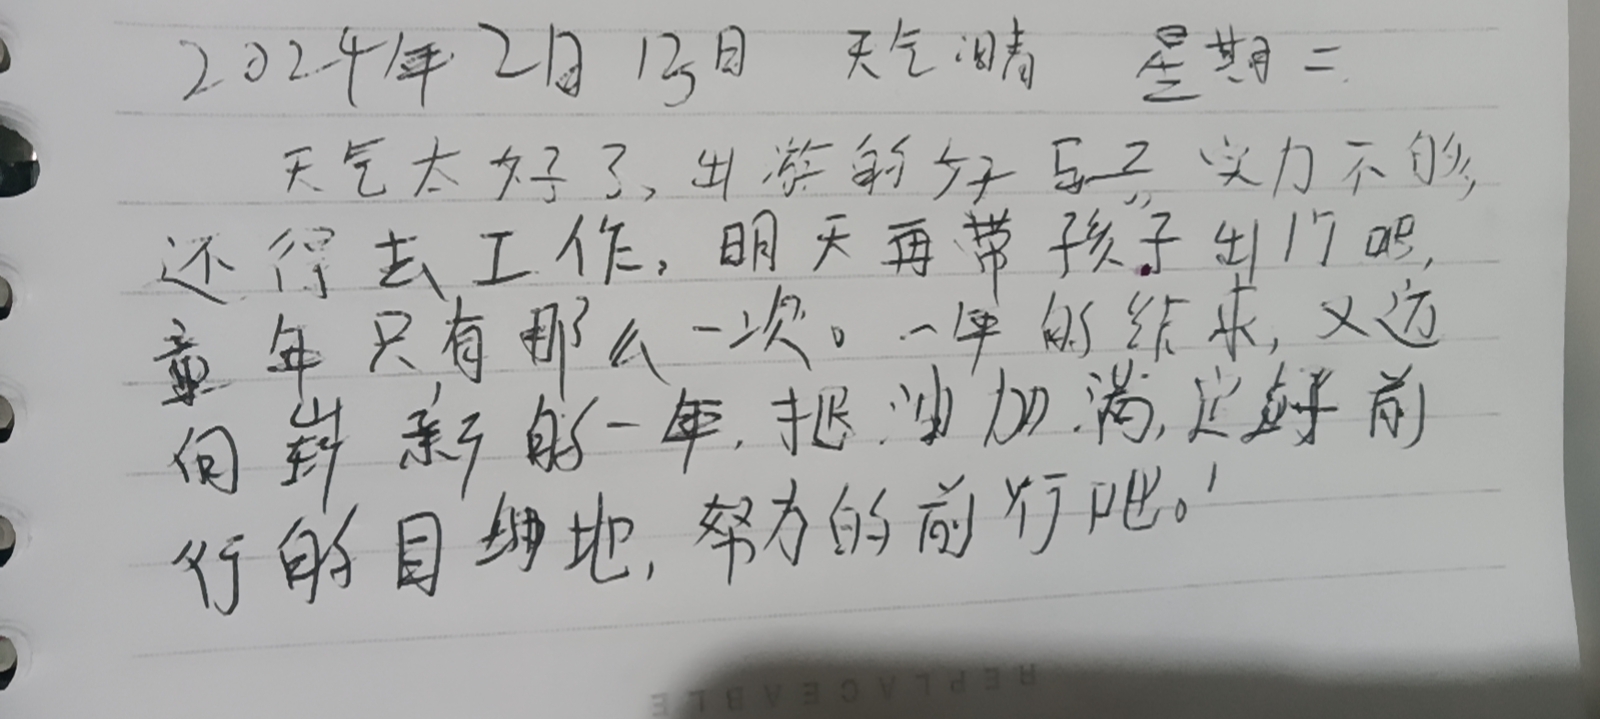 2024年2月13日 天气晴 星期二
天气太好了,出游的好日子,实力不的,
还得去工作,明天再带孩子出门吧,
童年只有那么一次。一年的结束,又迈
向崭新的一年,把油加满,定好前
行的目的地,努力的前行吧。
REPLACEABLE